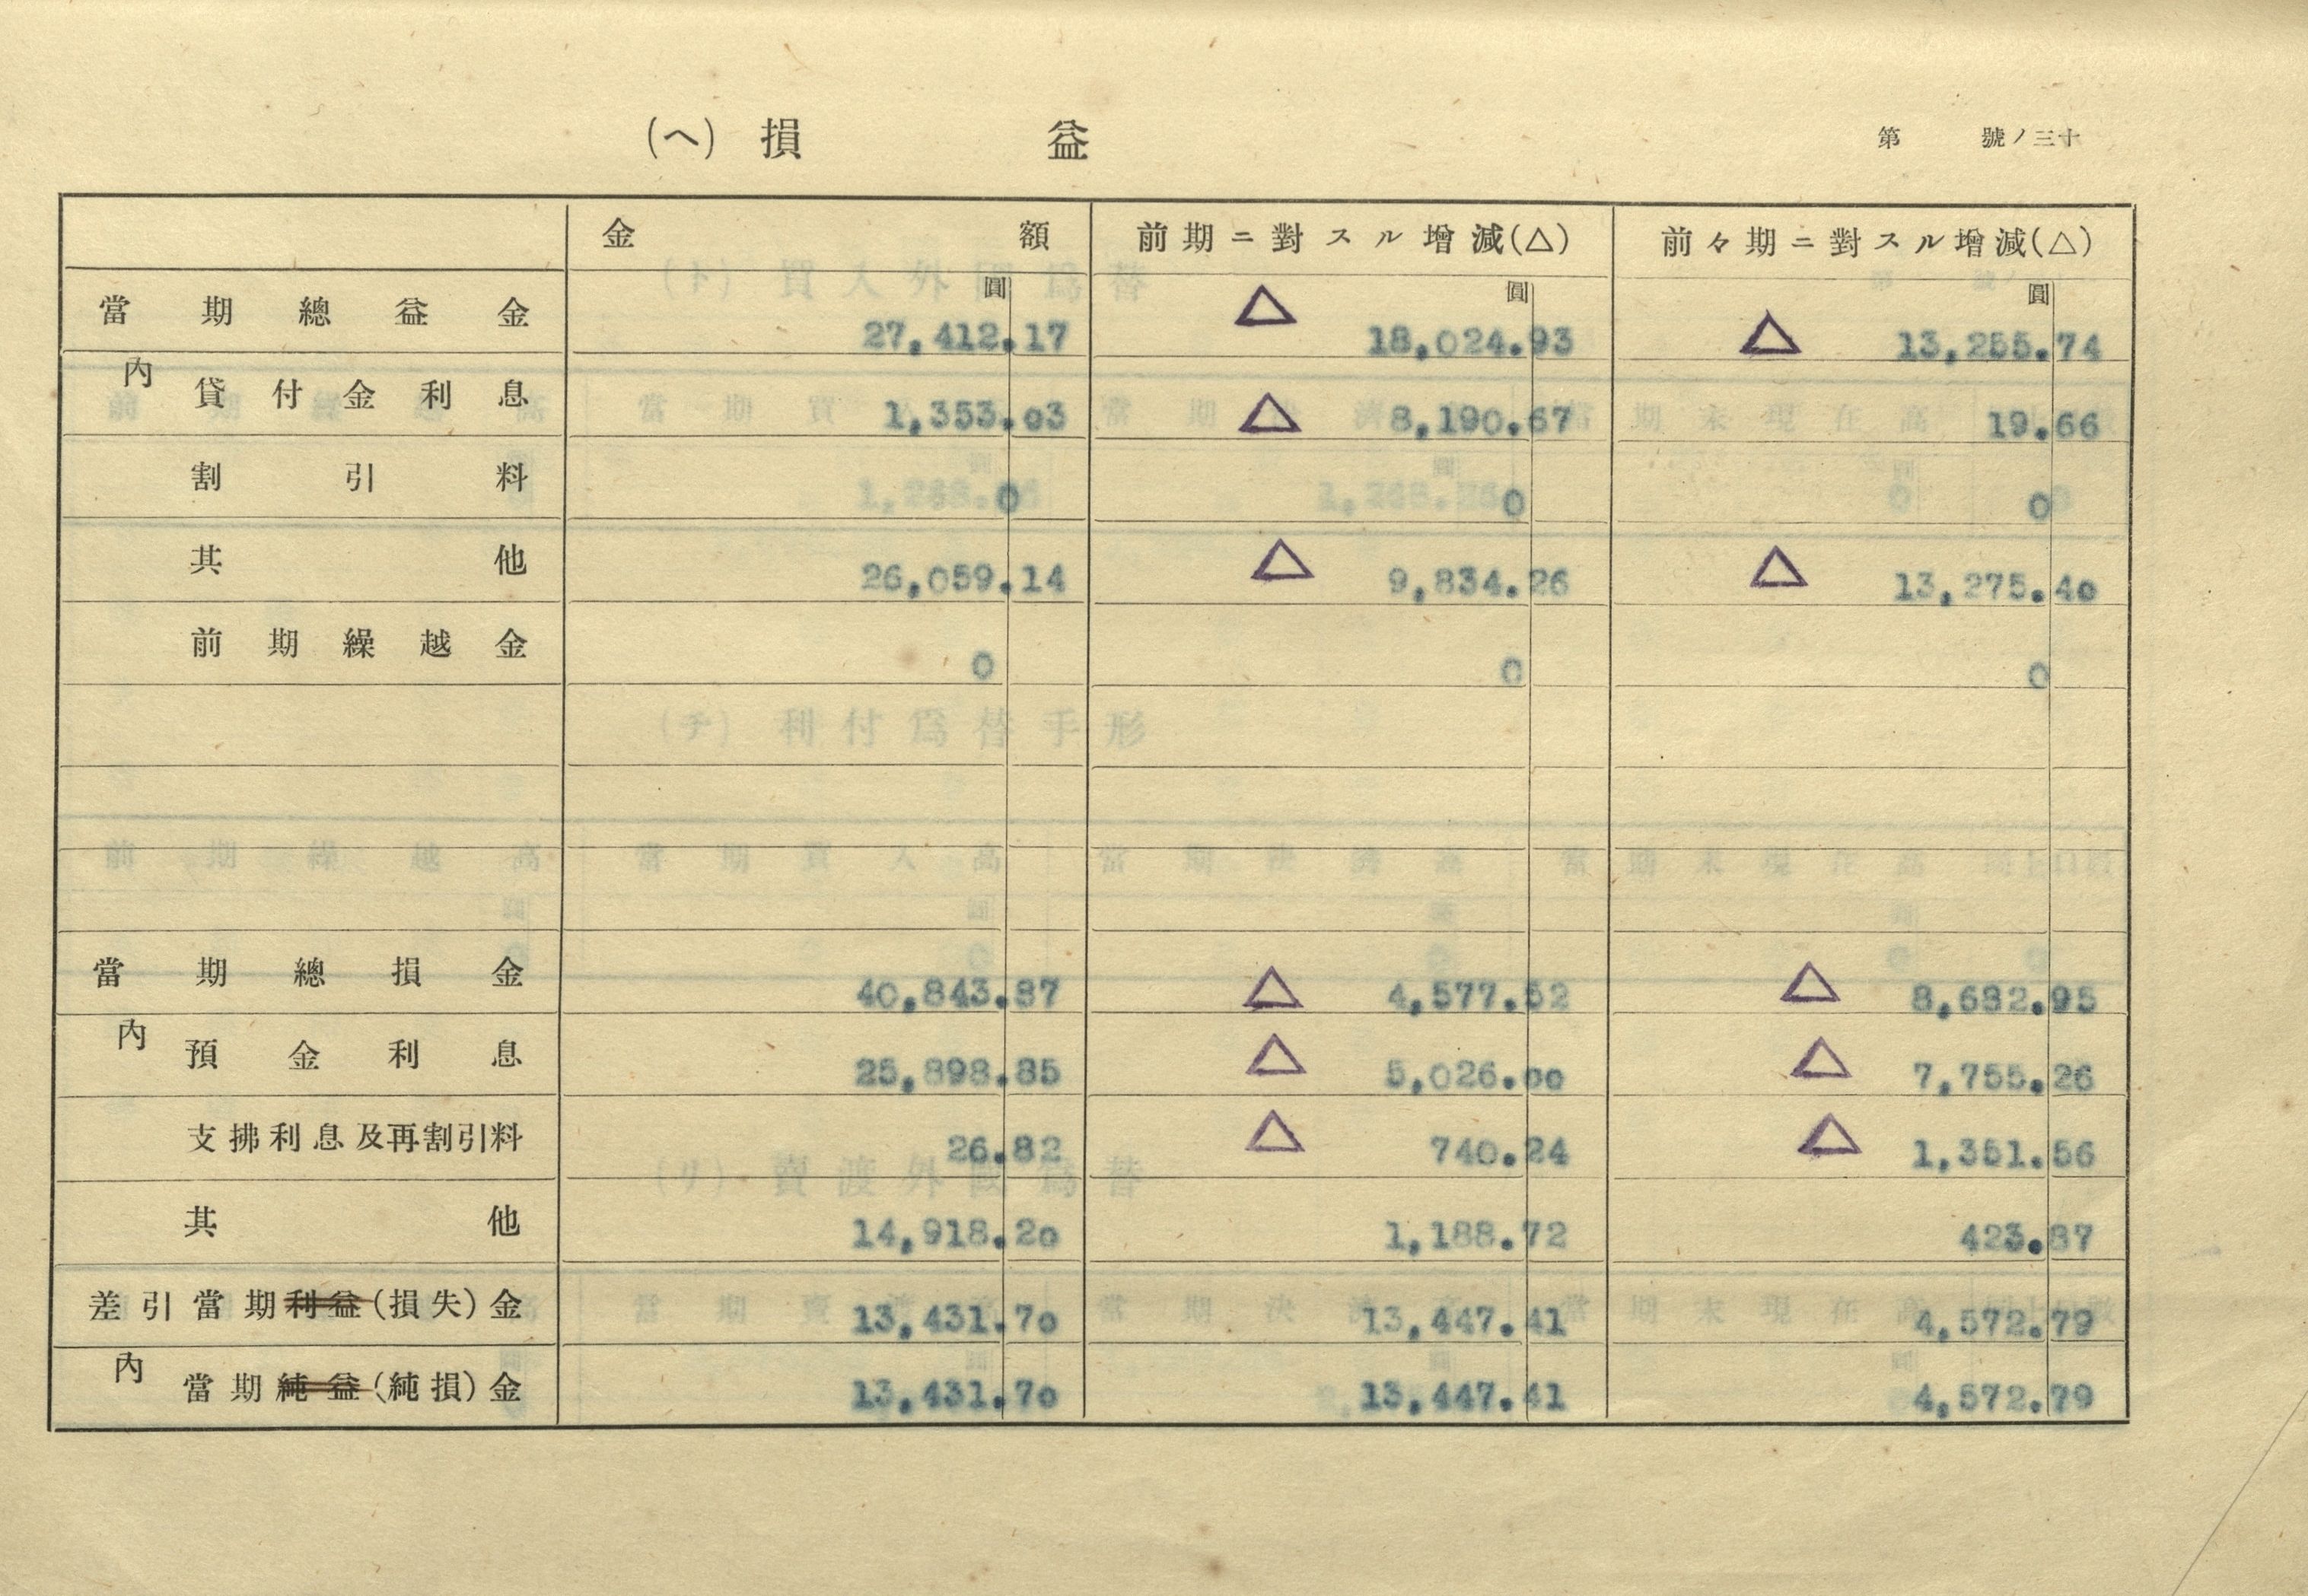 (ヘ) 損 益
第 號ノ三十
金 額 前期ニ對スル增減(△) 前々期ニ對スル增減(△)
當期總益金 圓 27,412.17 △ 圓 18,024.93 △ 圓 13,255.74
內 貸付金利息 1,353.03 △ 8,190.67 19.66
割引料 0 0 0
其他 26,059.14 △ 9,834.26 △ 13,275.40
前期繰越金 0 0 0
當期總損金 40,843.87 △ 4,577.52 △ 8,682.95
內 預金利息 25,898.85 △ 5,026.00 △ 7,755.26
支拂利息及再割引料 26.82 △ 740.24 △ 1,351.56
其他 14,918.20 1,188.72 423.87
差引當期利益(損失)金 13,431.70 13,447.41 4,572.79
內 當期純益(純損)金 13,431.70 13,447.41 4,572.79